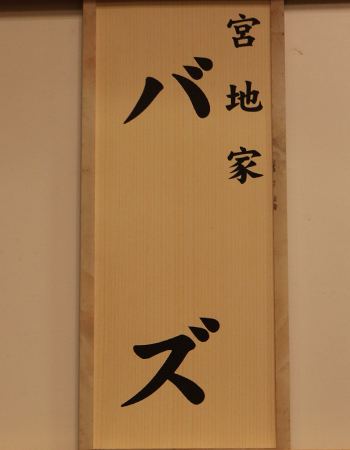 宮地家
バズ